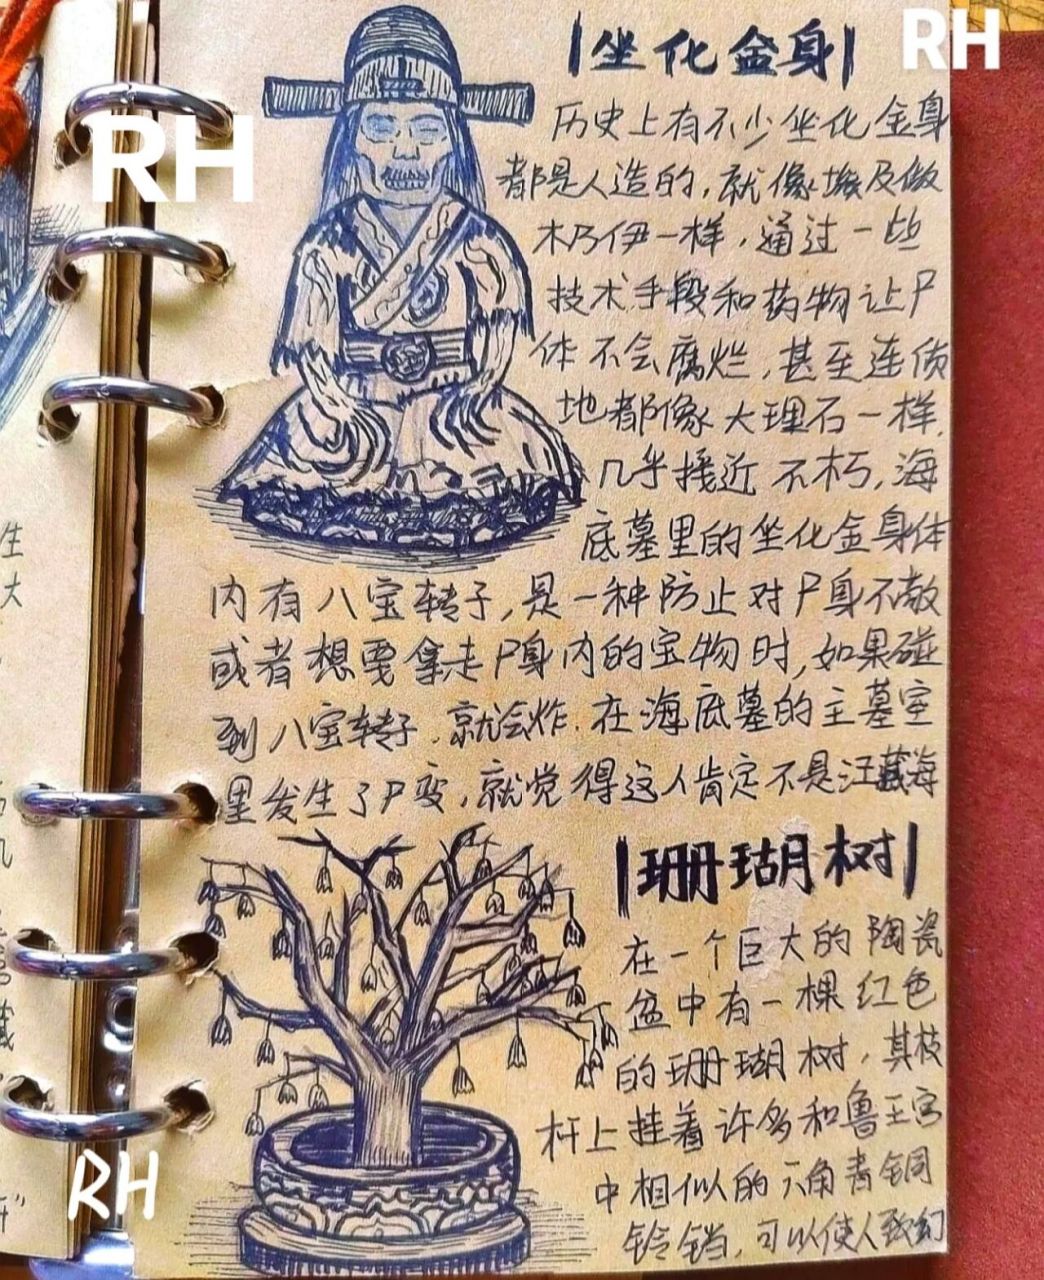 RH
RH
|坐化金身|
历史上有不少坐化金身
都是人造的,就像埃及做
木乃伊一样,通过一些
技术手段和药物让尸
体不会腐烂,甚至连质
地都像大理石一样,
几乎接近不朽,海
底墓里的坐化金身体
内有八宝转子,是一种防止对尸身不敬
或者想要拿走尸身内的宝物时,如果碰
到八宝转子,就会炸.在海底墓的主墓室
里发生了尸变,就觉得这人肯定不是汪藏海
|珊瑚树|
在一个巨大的陶瓷
盆中有一棵红色
的珊瑚树,其枝
杆上挂着许多和鲁王宫
中相似的六角青铜
铃铛,可以使人致幻
RH
生
大
藏